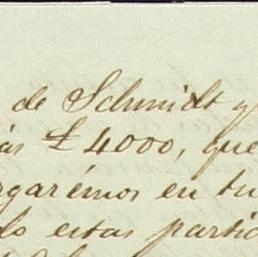 de Schmidt y
ás £ 4000, que
garémos en tu
do estas partid